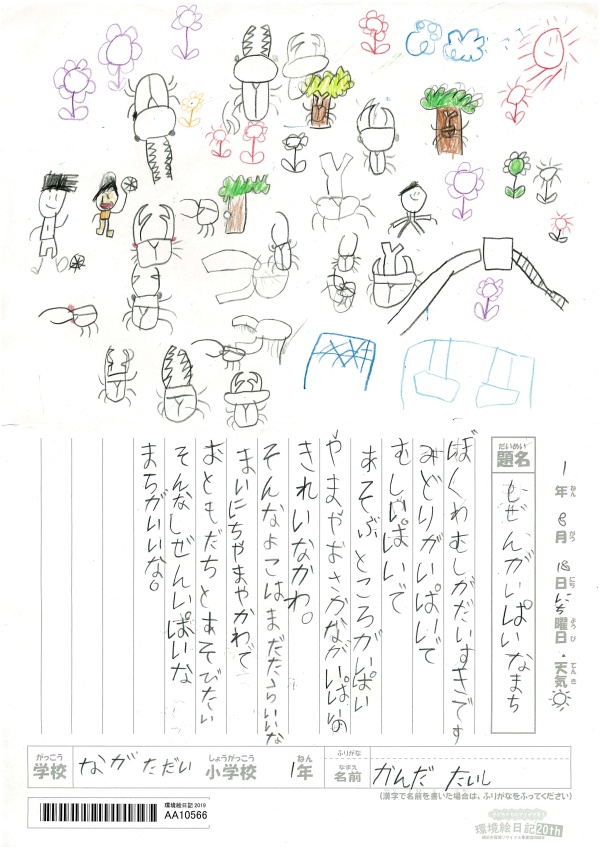 だいめい
題名
しぜんがいぱいなまち
1年 8月 18日 にち曜日・天気
ねん がつ にち ようび てんき
ぼくわむしがだいすきです
みどりがいぱいで
むしいぱいで
あそぶところがいぱい
やまやおさかながいぱいの
きれいなかわ。
そんなよこはまだたらいいな
まいにちやまやかわで
おともだちとあそびたい
そんなしぜんいぱいな
まちがいいな。
がっこう しょうがっこう ねん
学校 ながただい 小学校 1年
ふりがな
なまえ
名前 かんだ たいし
(漢字で名前を書いた場合は、ふりがなをふってください)
環境絵日記 2019
AA10566
環境絵日記20th